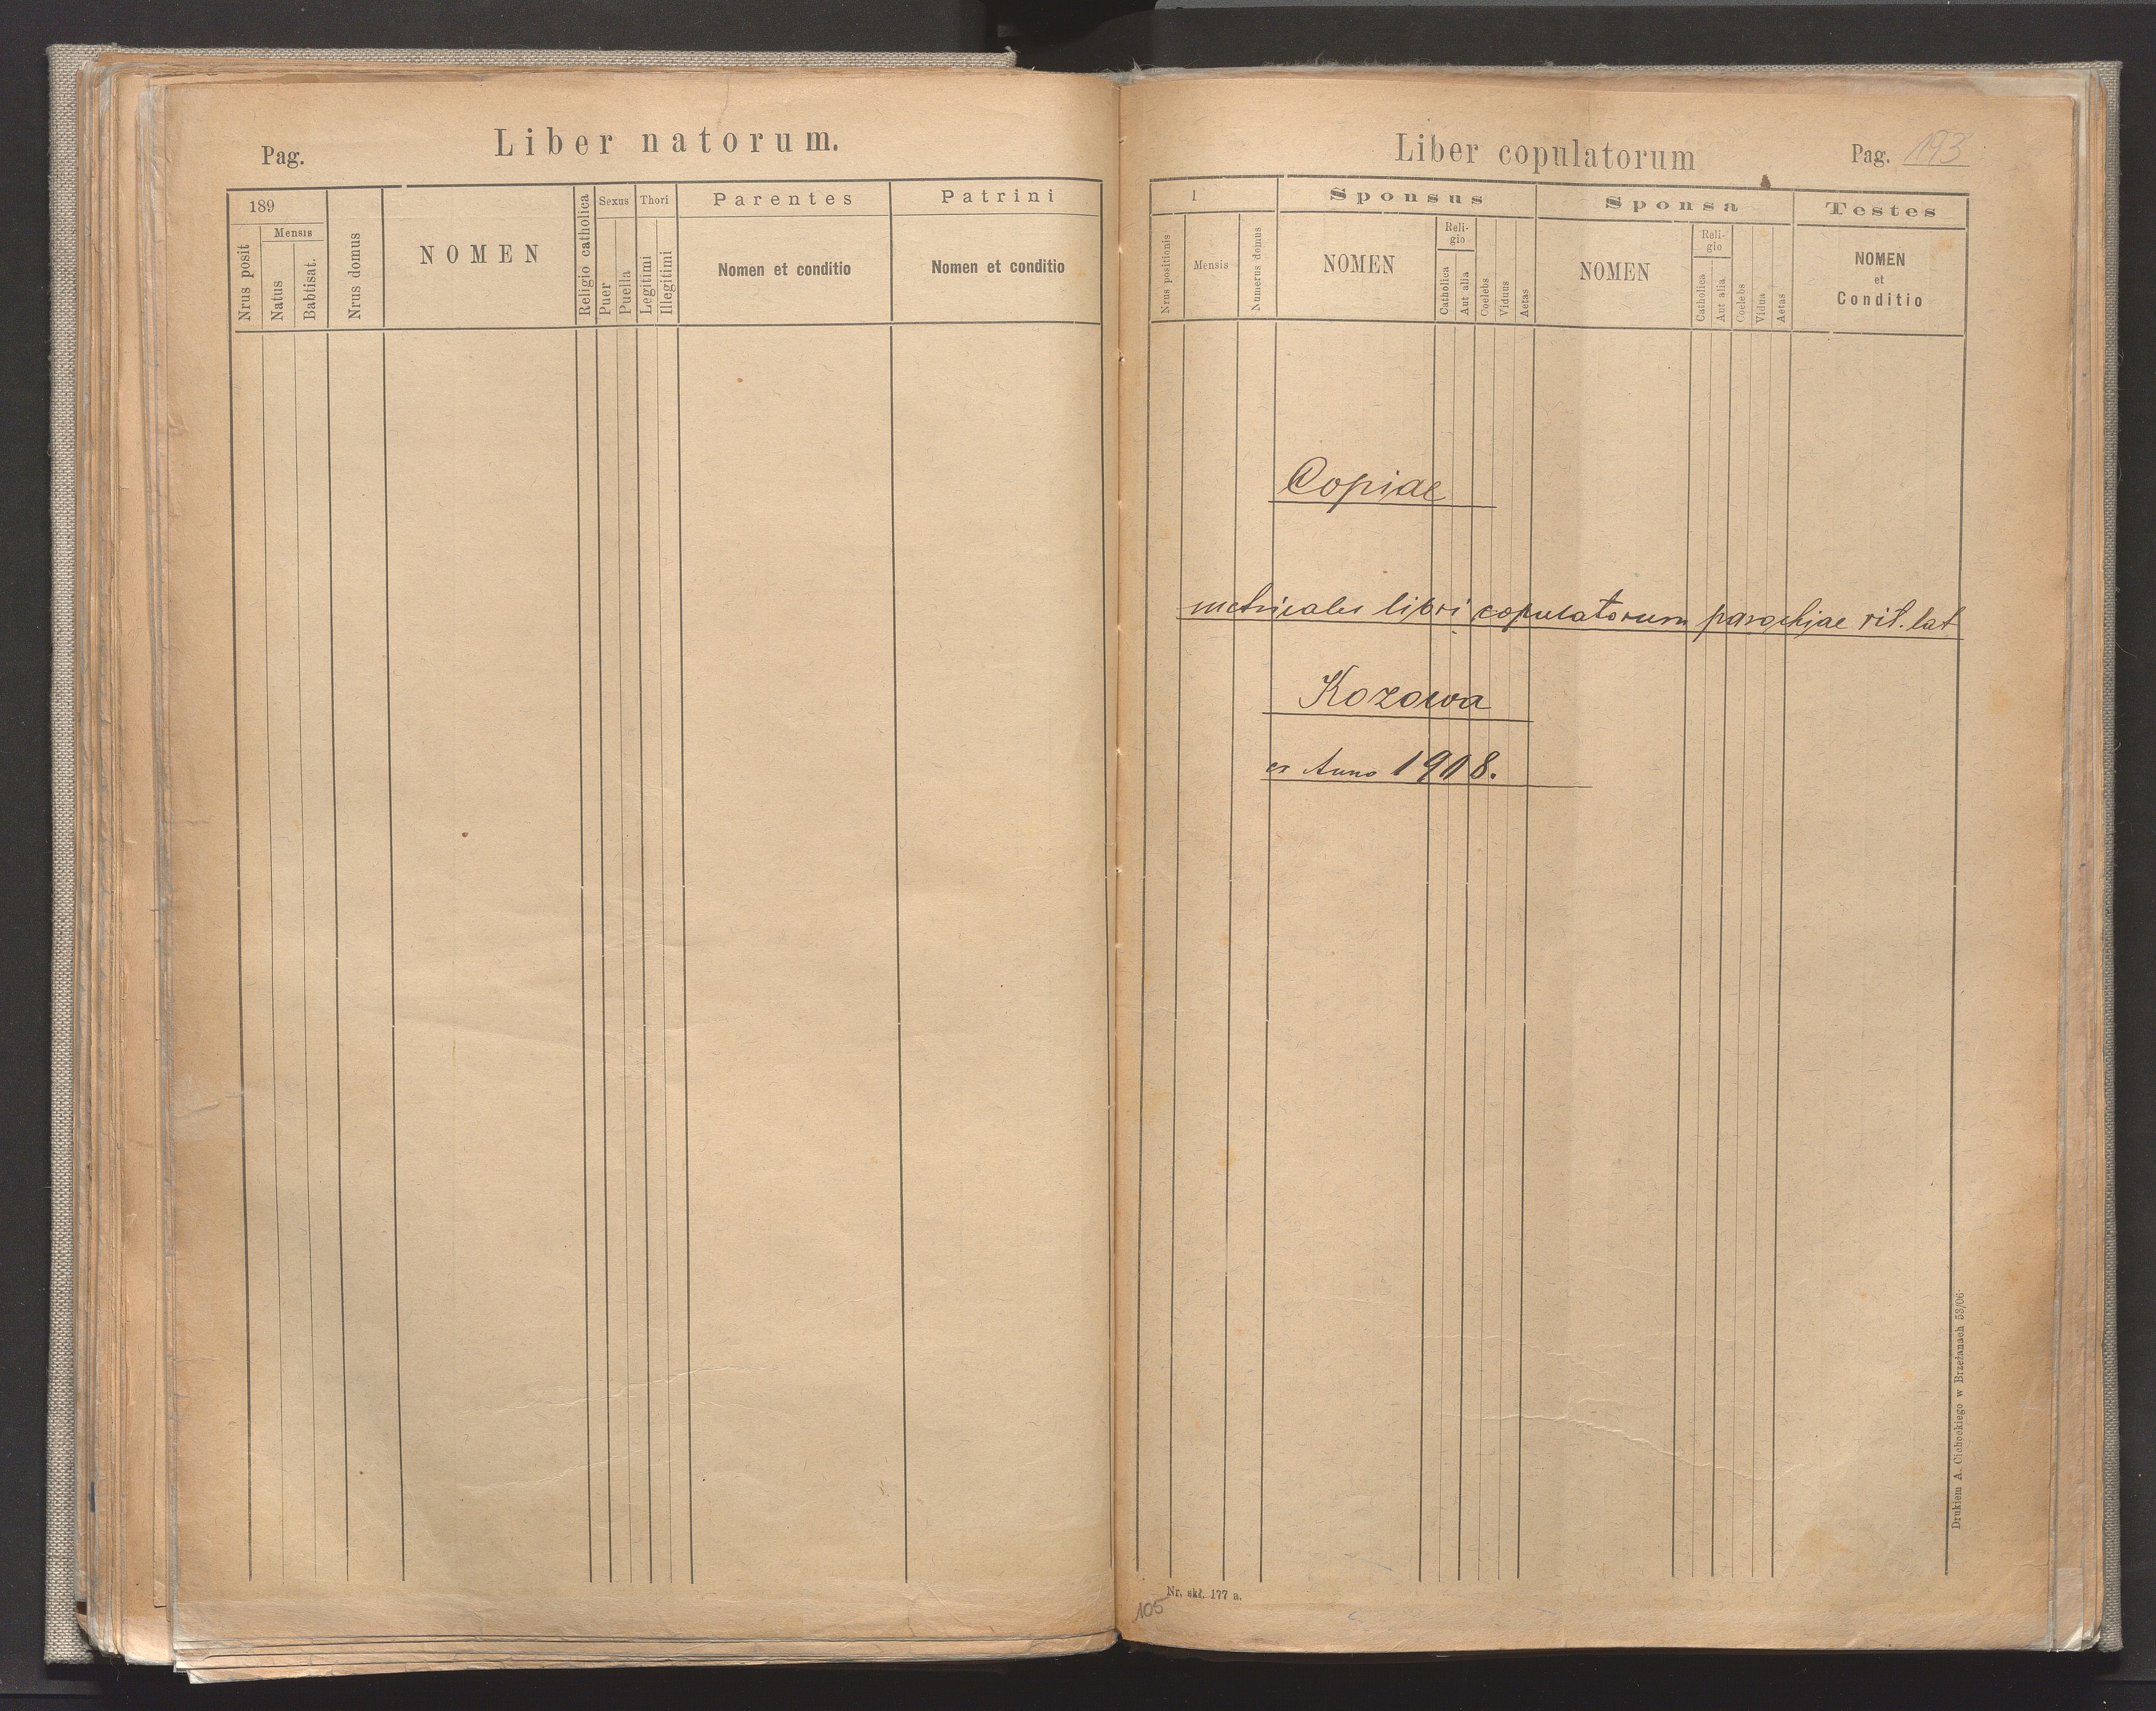 Pag.
Liber natorum.
189
Mensis
Nrus posit
Natus
Babtisat.
Nrus domus
NOMEN
Religio catholica
Sexus
Puer
Puella
Thori
Legitimi
Illegitimi
Parentes
Nomen et conditio
Patrini
Nomen et conditio
Liber copulatorum
Pag. 193
1
Nrus positionis
Mensis
Numerus domus
Sponsus
NOMEN
Reli-
gio
Catholica
Aut alia
Coelebs
Viduus
Aetas
Sponsa
NOMEN
Reli-
gio
Catholica
Aut alia
Coelebs
Vidua
Aetas
Testes
NOMEN
et
Conditio
Copiae
metricales libri copulatorum parochjae rit. lat
Kozowa
ex Anno 1908.
Drukiem A. Cichockiego w Brzeżanach 53/06
Nr. skł. 177 a.
105